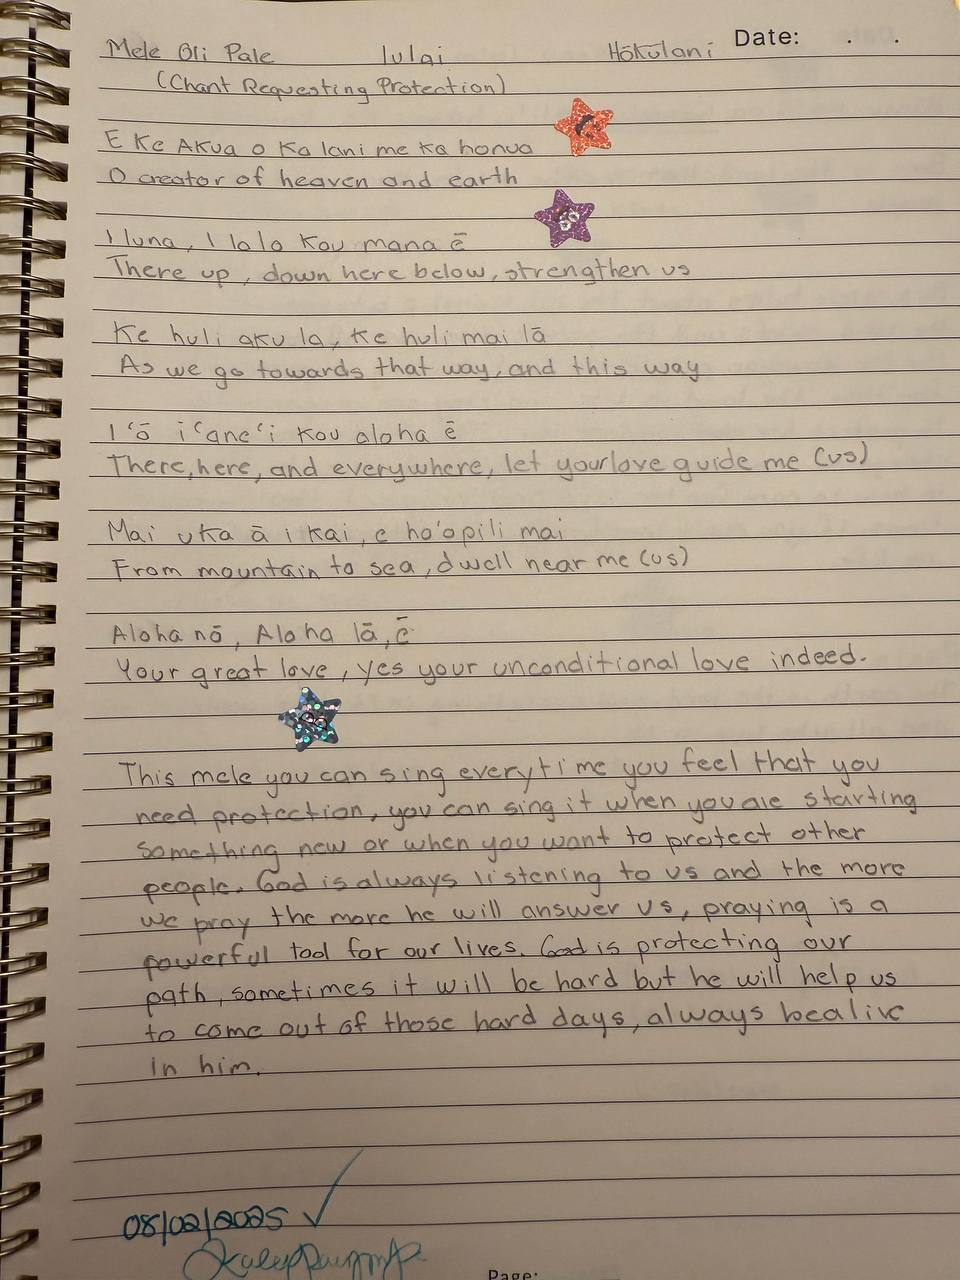 Mele Oli Pale Iulai Hōkūlani Date: . .
(Chant Requesting Protection)
E Ke Akua o Ka lani me Ka honua
O creator of heaven and earth
I luna, I lalo Kou mana ē
There up, down here below, strengthen us
Ke huli aku la, Ke huli mai lā
As we go towards that way, and this way
I ʻō iʻaneʻi Kou aloha ē
There, here, and everywhere, let your love guide me (us)
Mai uKa ā i Kai, e ho'opili mai
From mountain to sea, dwell near me (us)
Aloha nō, Aloha lā, ē
Your great love, yes your unconditional love indeed.
This mele you can sing everytime you feel that you
need protection, you can sing it when you are starting
something new or when you want to protect other
people. God is always listening to us and the more
we pray the more he will answer us, praying is a
powerful tool for our lives. God is protecting our
path, sometimes it will be hard but he will help us
to come out of those hard days, always be alive
in him.
08/02/2025 ✓
Page: